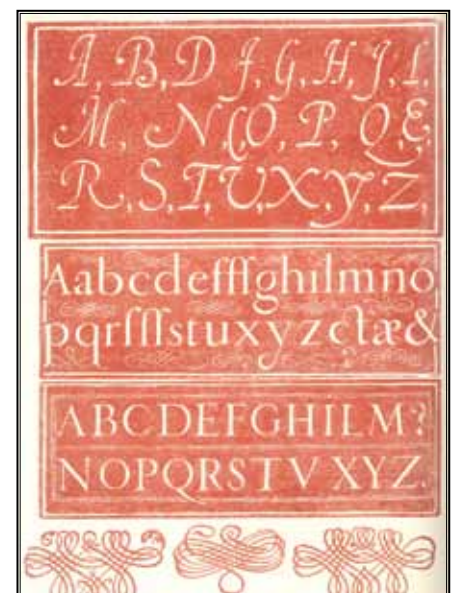 A, B, D F, G, H, J, L,
M, N, C, O, P, Q, E,
R, S, T, U, X, Y, Z,
Aabcdefffghilmno
pqrſſſstuxyzctæ&
ABCDEFGHILM?
NOPQRSTV XYZ.